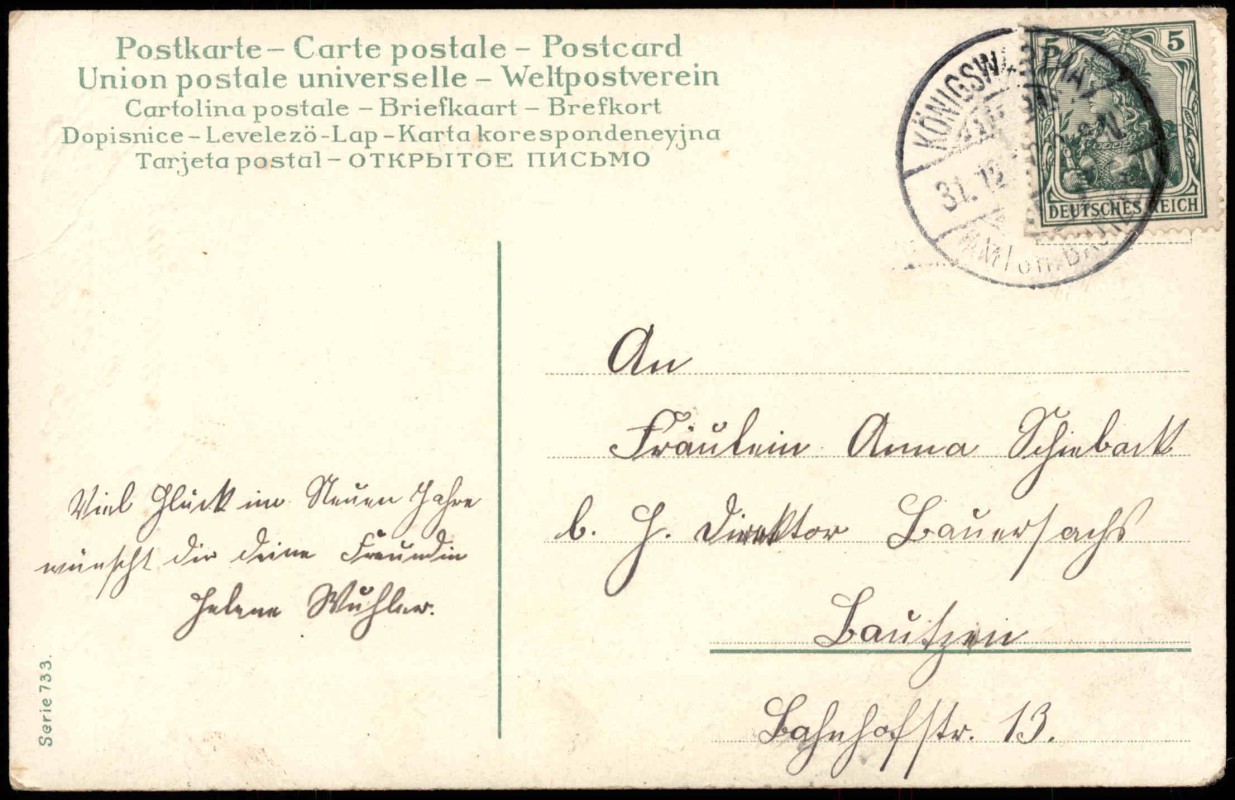 Postkarte – Carte postale – Postcard
Union postale universelle – Weltpostverein
Cartolina postale – Briefkaart – Brefkort
Dopisnice – Levelezö-Lap – Karta korespondeneyjna
Tarjeta postal – ОТКРЫТОЕ ПИСЬМО
5 5
KÖNIGSWARTHA
31.12
DEUTSCHES REICH
An
Fräulein Anna Schieback
b. H. Direktor Bauersachs
Bautzen
Bahnhofstr. 13.
Viel Glück im Neuen Jahre
wünscht dir deine Freundin
Helene
Serie 733.